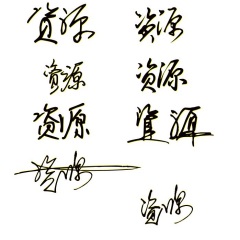 资源 资源
资源 资源
资源 资源
资源
资源